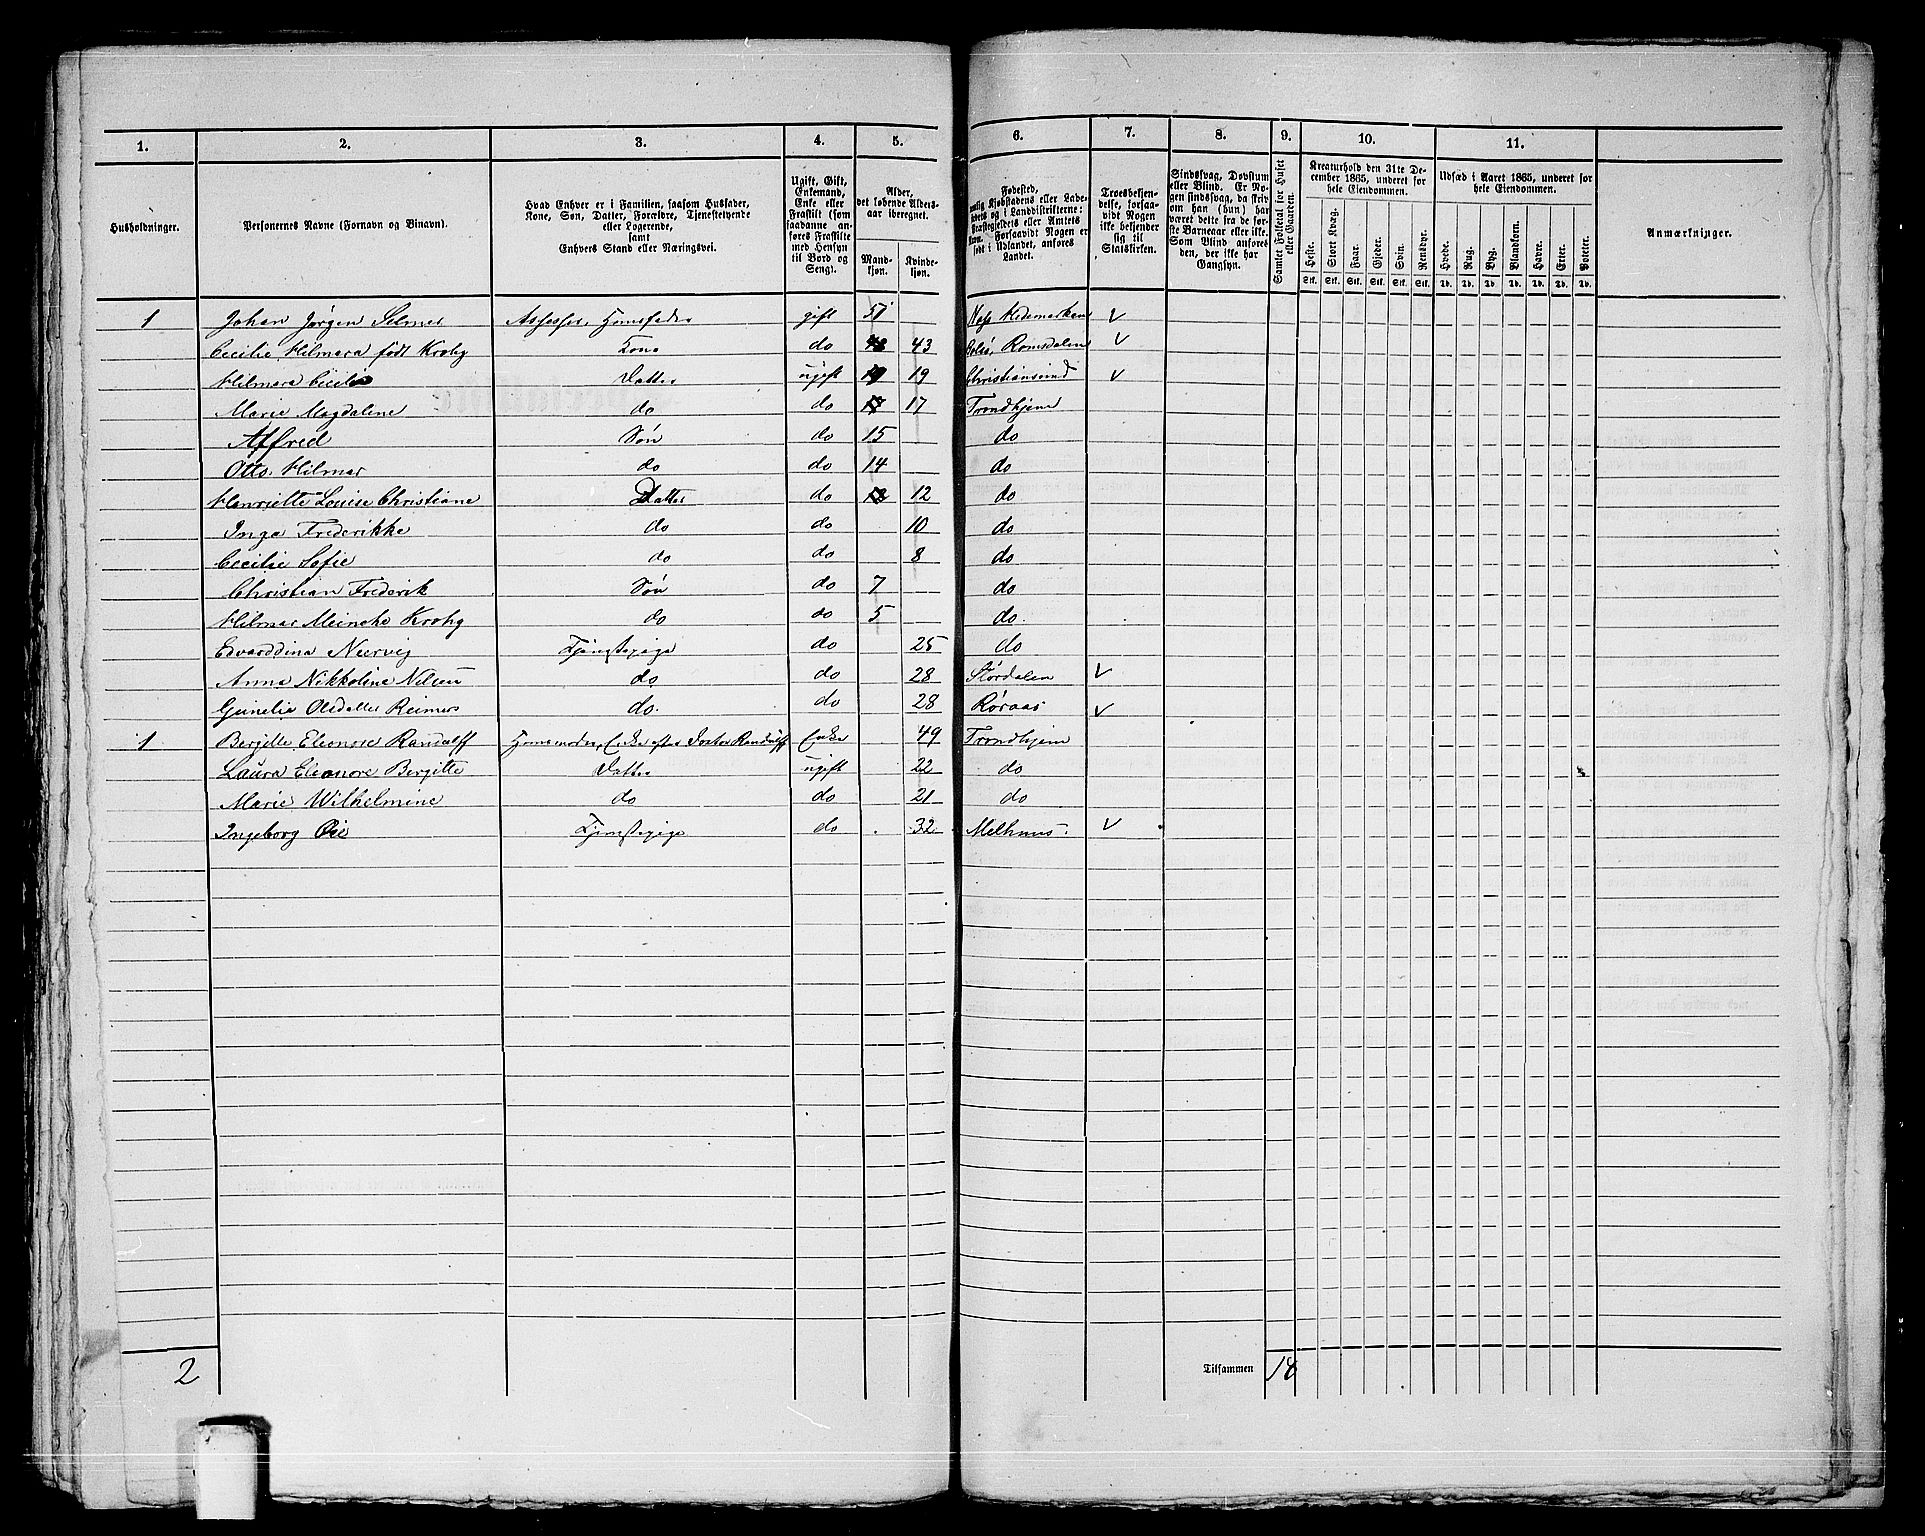 1. 2. 3. 4. 5. 6. 7. 8. 9. 10. 11.
Husholdninger.
Personernes Navne (Fornavn og Binavn).
Hvad Enhver er i Familien, saasom Husfader,
Kone, Søn, Datter, Forældre, Tjenestetyende
eller Logerende,
samt
Enhvers Stand eller Næringsvei.
Ugift, Gift,
Enkemand,
Enke eller
Fraskilt (som
saadanne an-
føres Fraskilte
med Hensyn
til Bord og
Seng).
Alder,
det løbende Alders-
aar iberegnet.
Mand-
kjøn.
Kvinde-
kjøn.
Fødested,
Kjøbstadens eller Lade-
stedets og i Landdistrikterne:
Præstegjeldets eller Amtets
Navn. Forsaavidt Nogen er
født i Udlandet, anføres
Landet.
Troesbekjen-
delse, forsaa-
vidt Nogen
ikke bekjender
sig til
Statskirken.
Sindssvag, Døvstum
eller Blind. Er No-
gen sindssvag, da skriv
om han (hun) har
været dette fra de før-
ste Barneaar eller ikke.
Som Blind anføres
den, der ikke har
Gangsyn.
Samlet Folketal for Huset
eller Gaarden.
Kreaturhold den 31te De-
cember 1865, underet for
hele Eiendommen.
Heste. Stort Kvæg. Faar. Gjeder. Svin. Rensdyr.
Stk. Stk. Stk. Stk. Stk. Stk.
Udsæd i Aaret 1865, underet for
hele Eiendommen.
Hvede. Rug. Byg. Blandkorn. Havre. Erter. Poteter.
Td. Td. Td. Td. Td. Td. Td.
Anmærkninger.
1 Johan Jørgen Selmer Assessor, Huusfader gift 51 Næs Hedemarken V
Cecilie Hilmara født Krohg Kone do 43 Bolsø, Romsdalen V
Hilmara Cecilie Datter ugift 19 Christianssund V
Marie Magdalene do do 17 Trondhjem
Alfred Søn do 15 do
Otto Hilmar do do 14 do
Henriette Louise Christiane Datter do 12 do
Inga Frederikke do do 10 do
Cecilie Sofie do do 8 do
Christian Frederik Søn do 7 do
Hilmar Meincke Krohg do do 5 do.
Edvarddina Neervig Tjenestepige do 25 do
Anna Nikkoline Nilsen do do 28 Størdalen V
Gunelia Olsdatter Reimers do. do 28 Røraas V
1 Bergitte Eleonore Randulff Huusmoder, Enke efter Doctor Randulff Enke 49 Trondhjem
Laura Eleonore Bergitte Datter ugift 22 do
Marie Wilhelmine do do 21 do
Ingeborg Øie Tjenestepige do 32 Melhuus V
2 Tilsammen 18